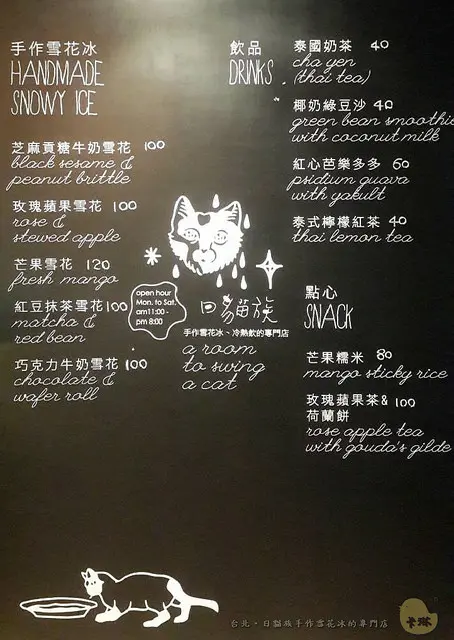 手作雪花冰
HANDMADE
SNOWY ICE
芝麻貢糖牛奶雪花 100
black sesame &
peanut brittle
玫瑰蘋果雪花 100
rose &
stewed apple
芒果雪花 120
fresh mango
紅豆抹茶雪花 100
matcha &
red bean
巧克力牛奶雪花 100
chocolate &
wafer roll
open hour
Mon. to Sat.
am11:00 -
pm 8:00
日貓族
手作雪花冰、冷熱飲的專門店
a room
to swing
a cat
飲品
DRINKS
泰國奶茶 40
cha yen
(thai tea)
椰奶綠豆沙 40
green bean smoothie
with coconut milk
紅心芭樂多多 60
psidium guava
with yakult
泰式檸檬紅茶 40
thai lemon tea
點心
SNACK
芒果糯米 80
mango sticky rice
玫瑰蘋果茶& 100
荷蘭餅
rose apple tea
with gouda's gilde
台北・日貓族手作雪花冰的專門店